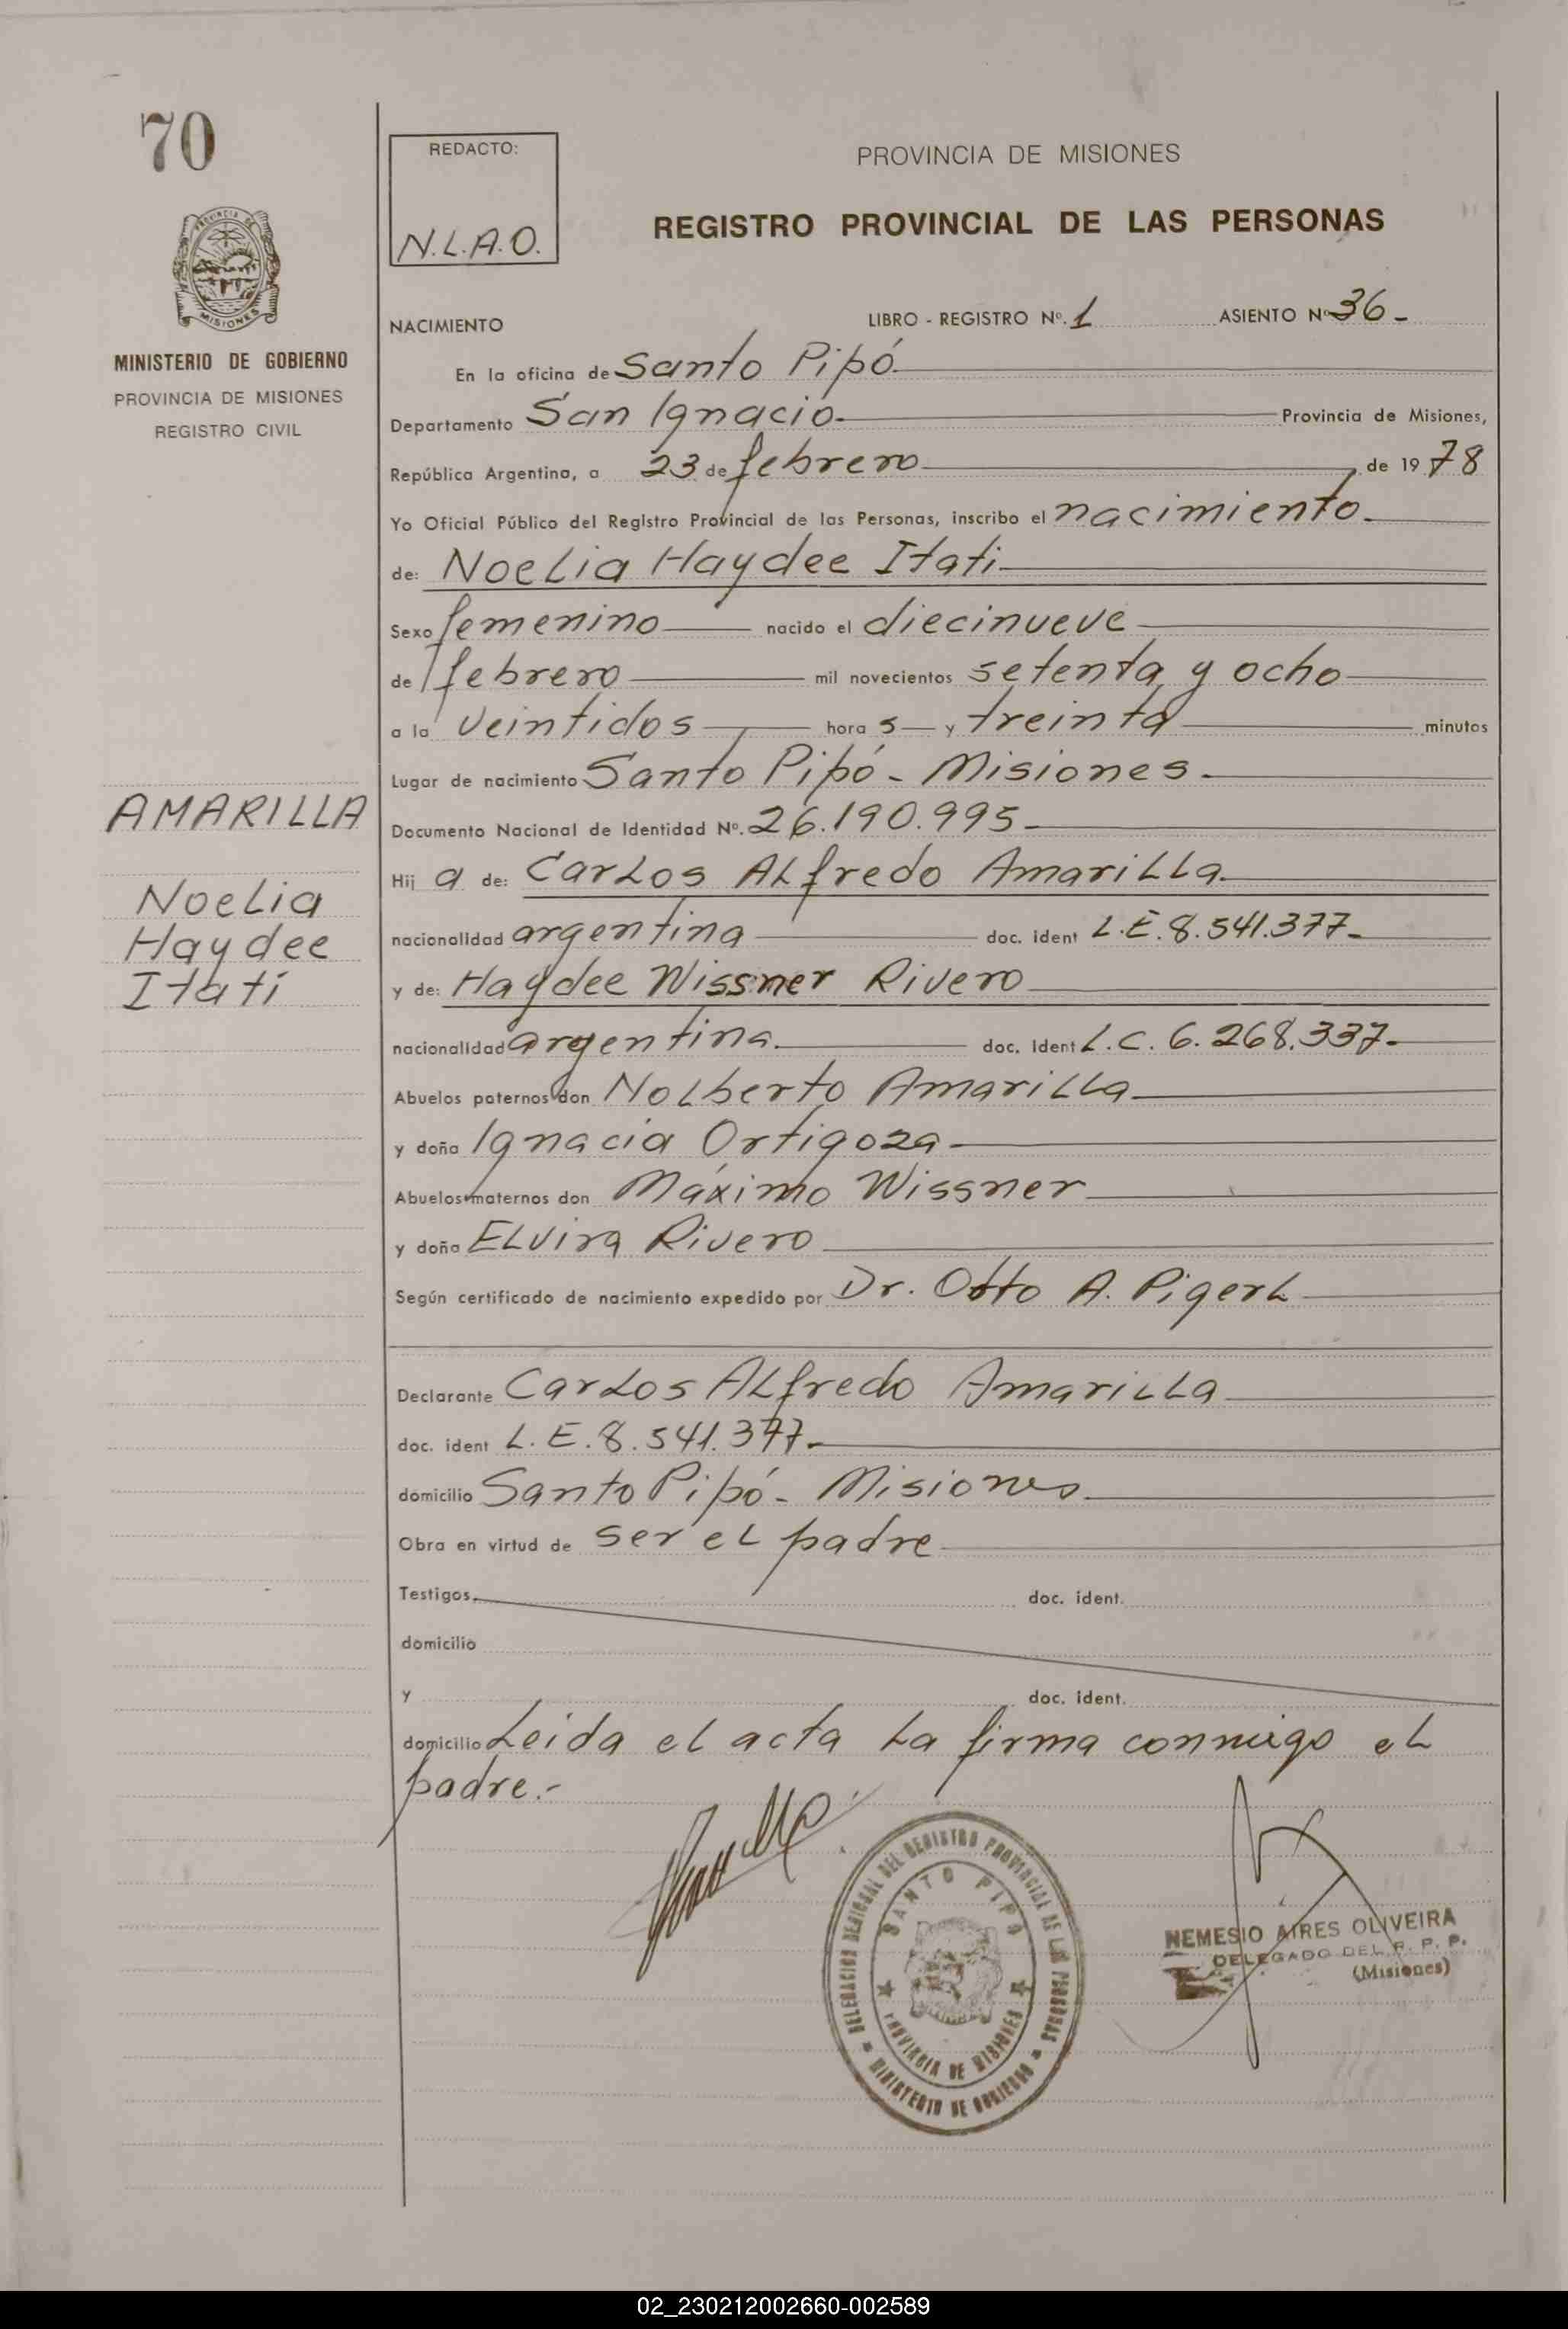 70
REDACTO:
N.L.A.O.
PROVINCIA DE MISIONES
REGISTRO PROVINCIAL DE LAS PERSONAS
PROVINCIA DE
MISIONES
MINISTERIO DE GOBIERNO
PROVINCIA DE MISIONES
REGISTRO CIVIL
NACIMIENTO LIBRO - REGISTRO Nº. 1 ASIENTO Nº 36-
En la oficina de Santo Pipó.
Departamento San Ignacio. Provincia de Misiones,
República Argentina, a 23 de febrero de 19 78
Yo Oficial Público del Registro Provincial de las Personas, inscribo el nacimiento.
de: Noelia Haydee Itati
Sexo femenino nacido el diecinueve
de febrero mil novecientos setenta y ocho
a la veintidos hora s y treinta minutos
Lugar de nacimiento Santo Pipó - Misiones.
Documento Nacional de Identidad Nº. 26.190.995-
Hij a de: Carlos Alfredo Amarilla.
nacionalidad argentina doc. ident L.E. 8.541.377-
y de: Haydee Wissner Rivero
nacionalidad argentina. doc. Ident L.C. 6.268.337-
Abuelos paternos don Nolberto Amarilla
y doña Ignacia Ortigoza
Abuelos maternos don Máximo Wissner
y doña Elvira Rivero
Según certificado de nacimiento expedido por Dr. Otto A. Pigerl
Declarante Carlos Alfredo Amarilla
doc. ident L.E. 8.541.377-
domicilio Santo Pipó - Misiones
Obra en virtud de ser el padre
Testigos doc. ident.
domicilio
y doc. ident.
domicilio Leida el acta la firma conmigo el
padre.-
AMARILLA
Noelia
Haydee
Itatí
DELEGACION REGIONAL DEL REGISTRO PROVINCIAL DE LAS PERSONAS
SANTO PIPO
PROVINCIA DE MISIONES
MINISTERIO DE GOBIERNO
NEMESIO AIRES OLIVEIRA
DELEGADO DEL R. P. P.
(Misiones)
02_230212002660-002589